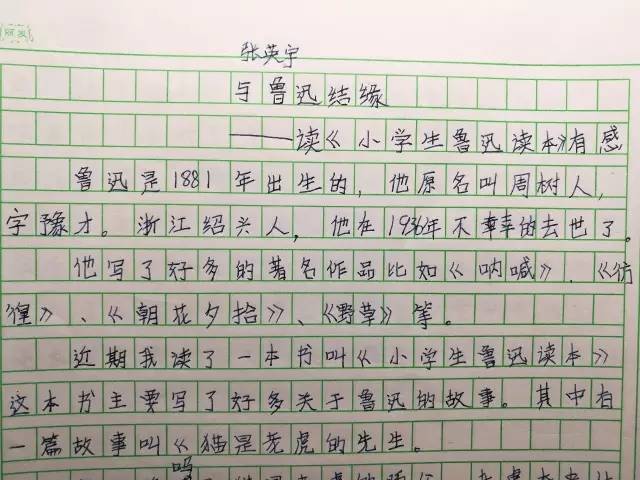 张英宇
与鲁迅结缘
——读《小学生鲁迅读本》有感
鲁迅是1881年出生的，他原名叫周树人，
字豫才。浙江绍兴人，他在1936年不幸的去世了。
他写了好多的著名作品比如《呐喊》、《彷
徨》、《朝花夕拾》、《野草》等。
近期我读了一本书叫《小学生鲁迅读本》
这本书主要写了好多关于鲁迅的故事。其中有
一篇故事叫《猫是老虎的先生。